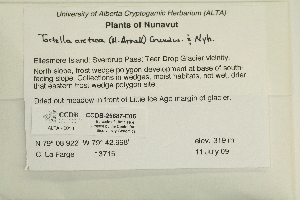 University of Alberta Cryptogamic Herbarium (ALTA)
Plants of Nunavut
Tortella arctica (H. Arnell) Crundw. & Nyh.
Ellesmere Island: Sverdrup Pass, Tear Drop Glacier vicinity.
North slope, frost wedge polygon development at base of south-
facing slope. Collections in wedges, moist habitats, not wet, drier
that eastern frost wedge polygon site.
Dried out meadow in front of Little Ice Age margin of glacier.
CCDB
CCDB-25687-E06
N 79° 08.922' W 79° 42.998' elev. 319 m
C. La Farge 13715 11 July 09